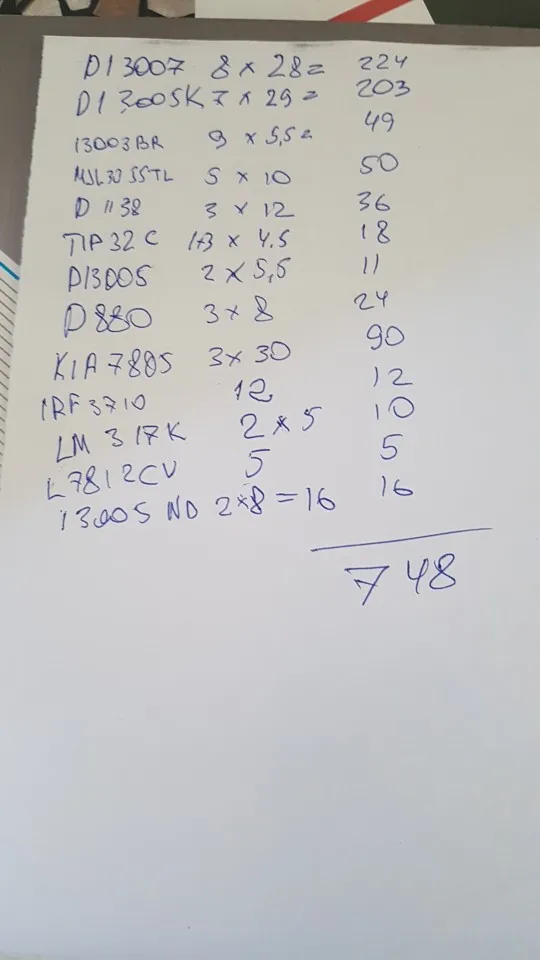 D13007 8 × 28 = 224
D13005K 7 × 29 = 203
13003BR 9 × 5,5 = 49
5 × 10 50
D 1138 3 × 12 36
TIP32C 1+3 × 4.5 18
D13005 2 × 5,5 11
D880 3 × 8 24
KIA7805 3 × 30 90
IRF3710 12 12
LM317K 2 × 5 10
L7812CV 5 5
13005 ND 2×8 = 16 16
748